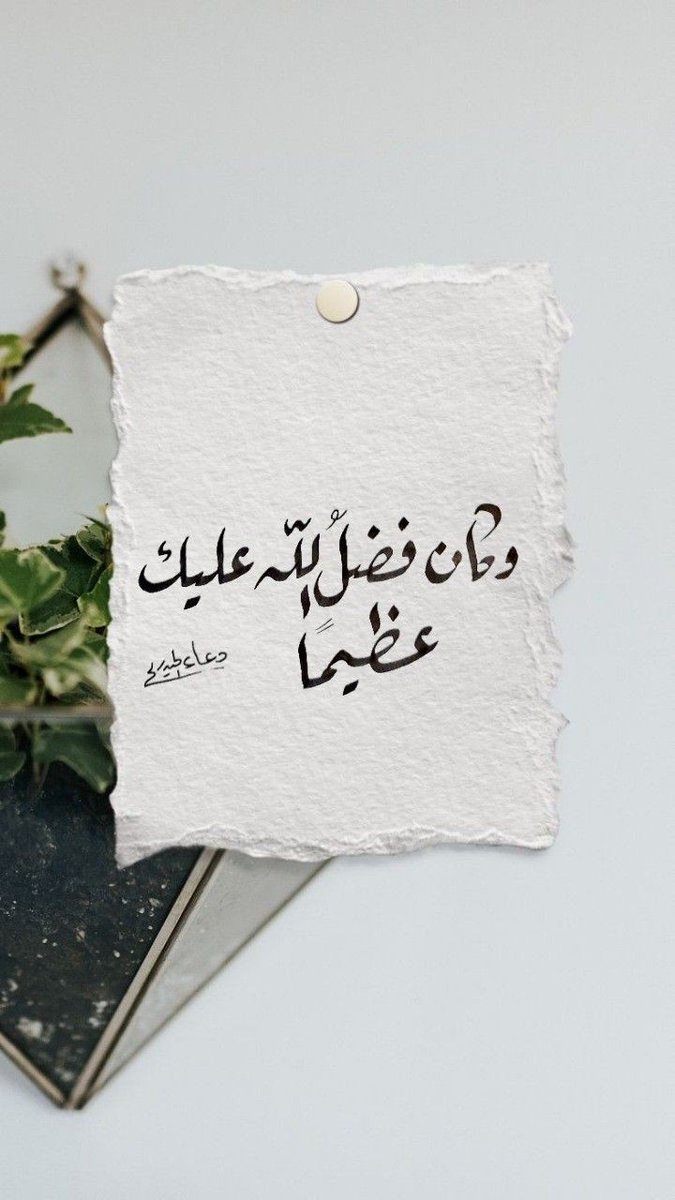 وكان فضلُ اللّه عليك
عظيمًا
دعاء